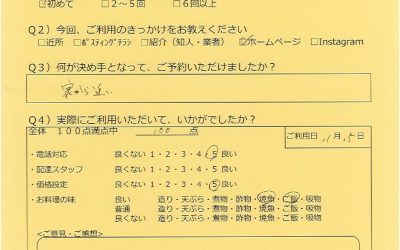 ☑初めて □２～５回 □６回以上
Ｑ２）今回、ご利用のきっかけをお教えください
□近所 □ﾎﾟｽﾃｨﾝｸﾞﾁﾗｼ □紹介（知人・業者） ☑ホームページ □Instagram
Ｑ３）何が決め手となって、ご予約いただけましたか？
家から近い
Ｑ４）実際にご利用いただいて、いかがでしたか？
全体 １００点満点中 100 点
ご利用日 11月15日
・電話対応 良くない１・２・３・４・５良い
・配達スタッフ 良くない１・２・３・４・５良い
・価格設定 良くない１・２・３・４・５良い
・お料理の味 良い 造り・天ぷら・煮物・酢物・焼魚・ご飯・吸物
普通 造り・天ぷら・煮物・酢物・焼魚・ご飯・吸物
良くない 造り・天ぷら・煮物・酢物・焼魚・ご飯・吸物
＜ご意見・ご感想＞